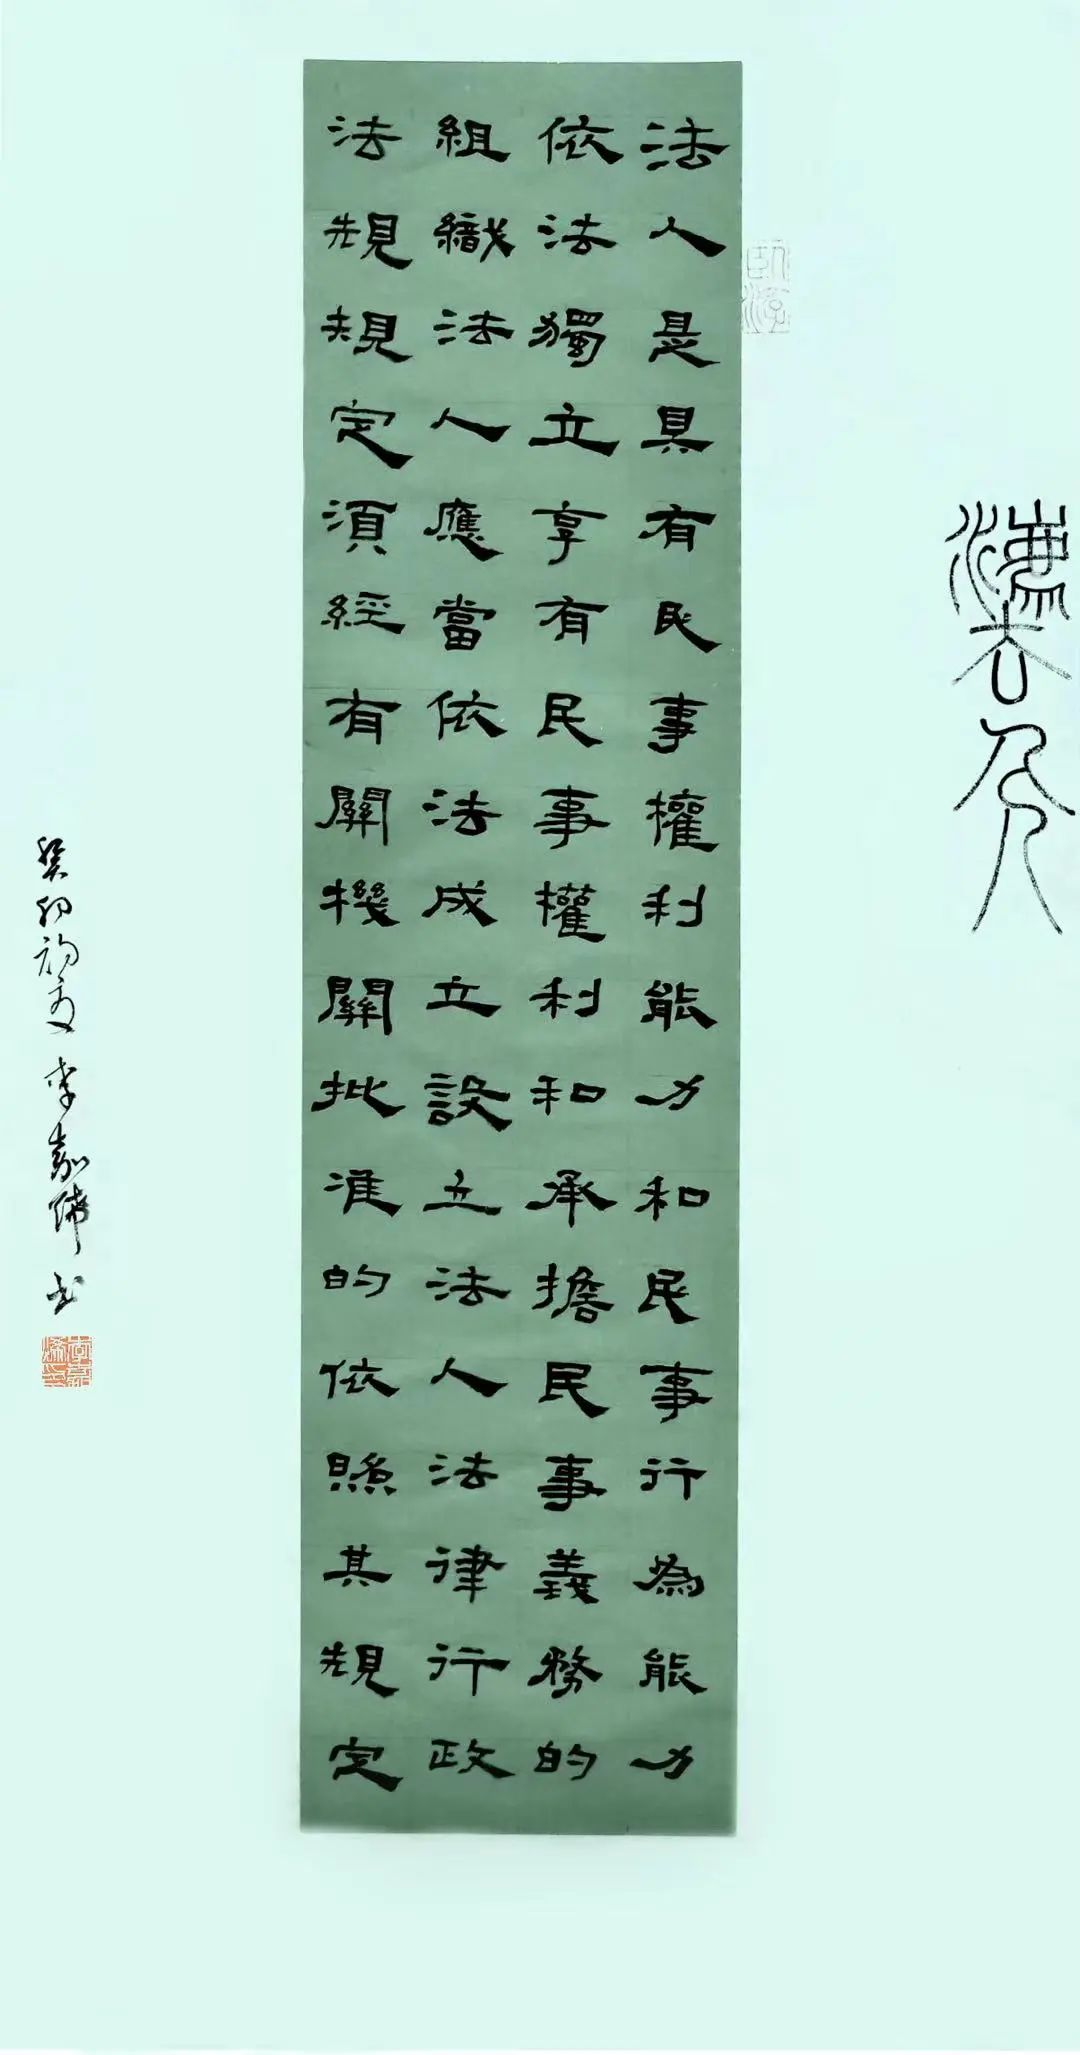 灋人
法人是具有民事權利能力和民事行為能力
依法獨立享有民事權利和承擔民事義務的
組織法人應當依法成立設立法人法律行政
法規規定須經有關機關批准的依照其規定
癸卯初夏李嘉儒書